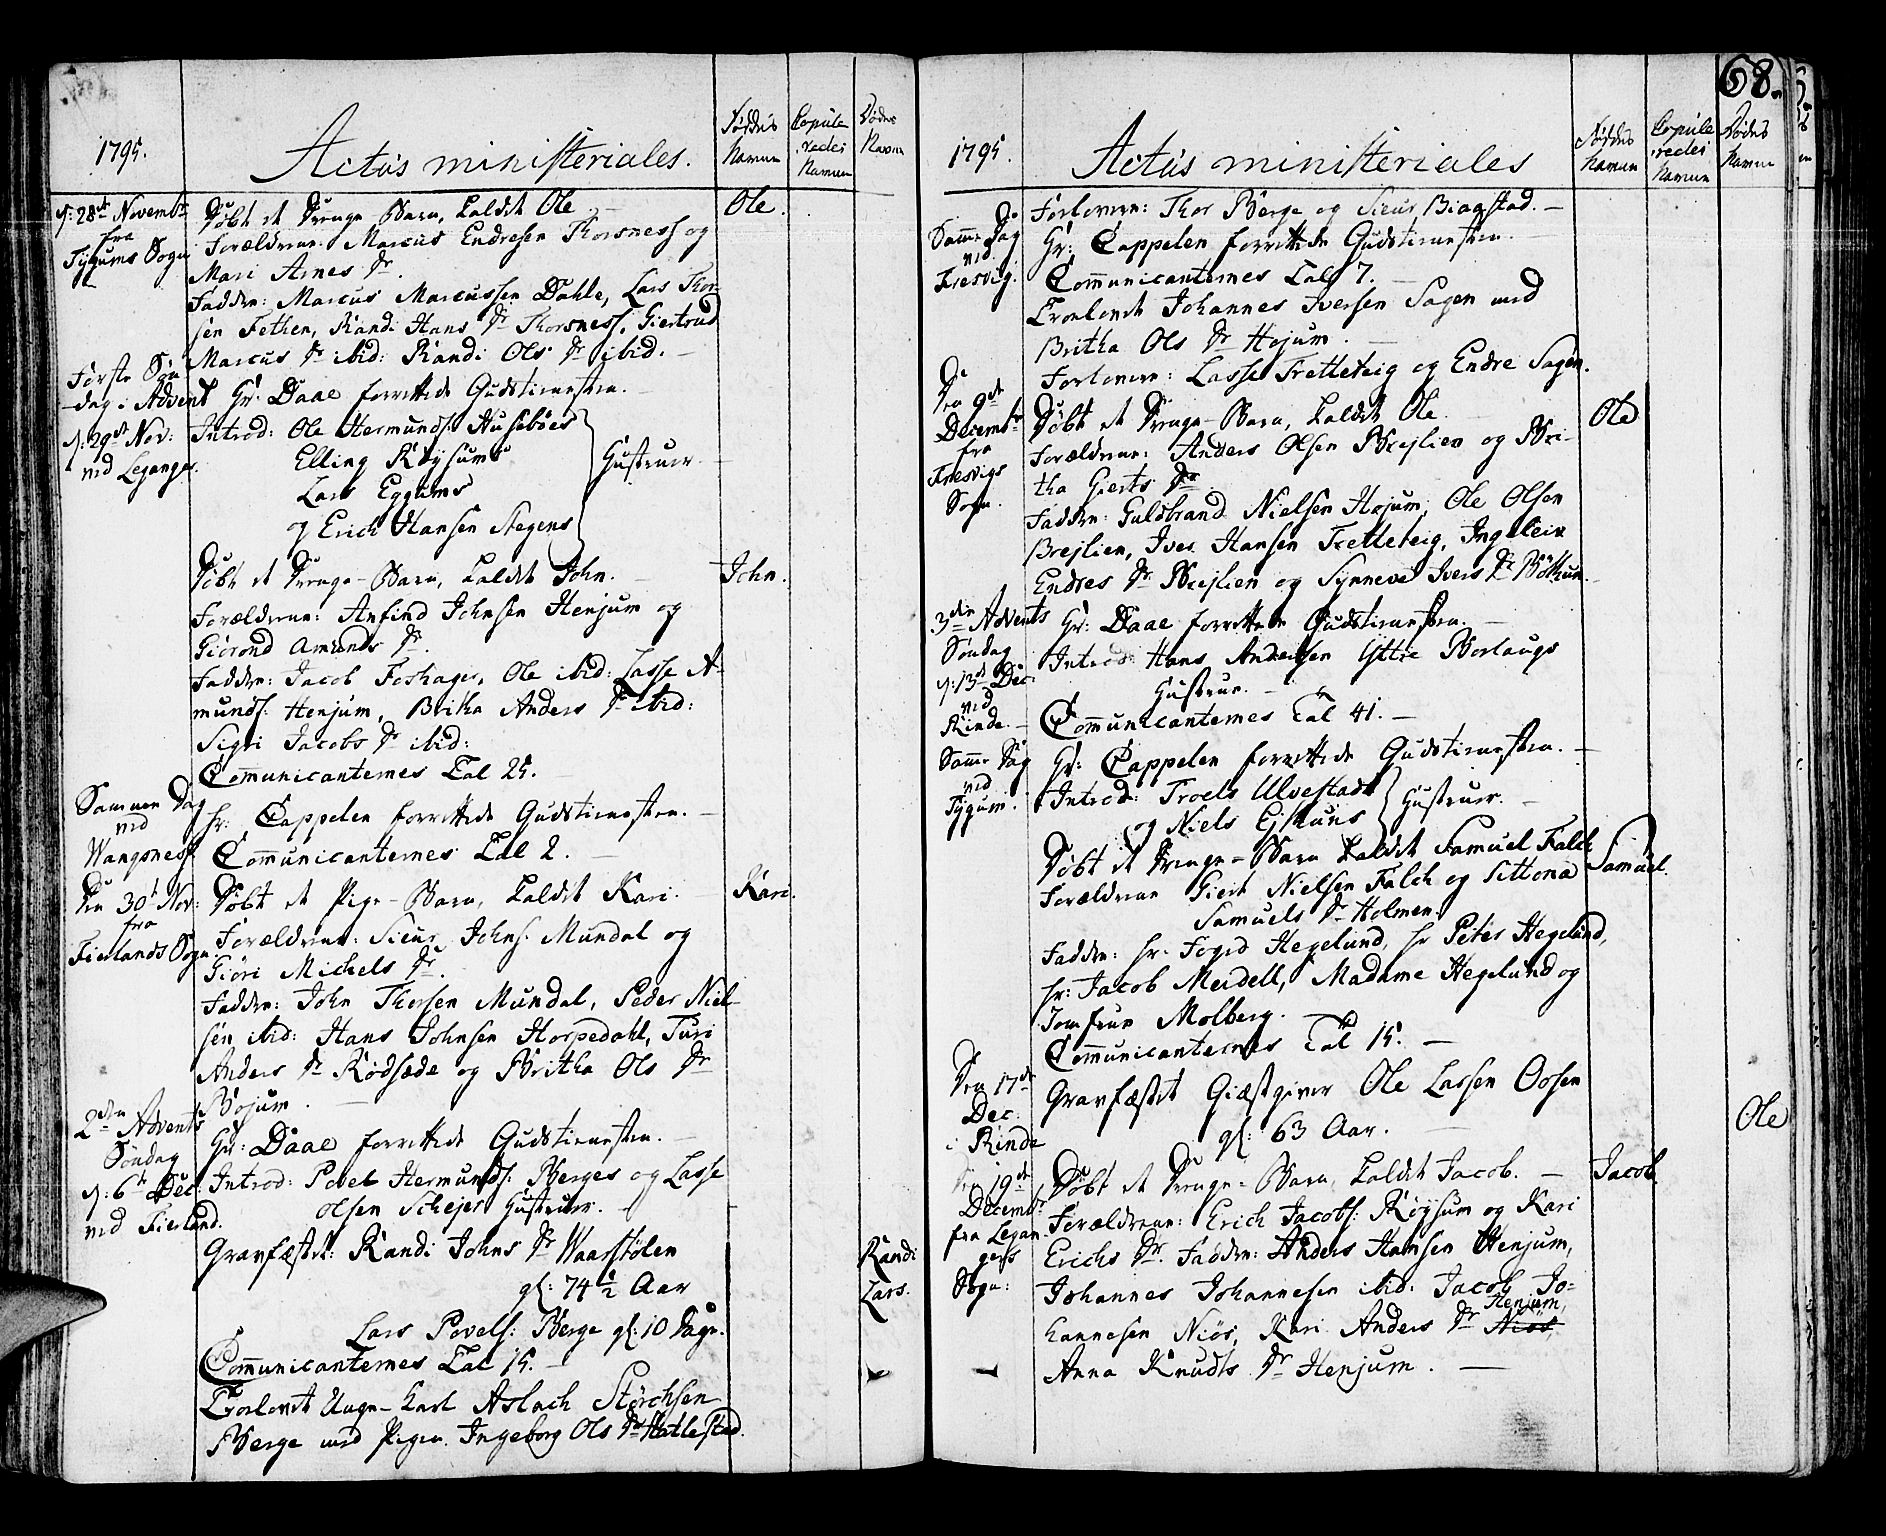 1795.
Actus ministeriales.
Føddes Navne
Copuleredes Navne
Dødes Navne
d: 28de Novembr
fra
Tygums Sogn
Døbt et Drenge-Barn, kaldet Ole
Ole.
Forældrene: Marcus Endresen Thorsness og
Mari Arnes Dr.
Faddere: Marcus Marcussen Dahle, Lars Thor-
sen Fethen, Randi Hans Dr Thorsness, Giertrud
Marcus Dr ibid: Randi Ols Dr ibid.
Første Søn-
dag i Advent
d: 29de Nov:
ved Leganger.
Hr: Daae forrettede Gudstienesten.
Introd: Ole Hermunds: Husebøes
Elling Røysums
Lars Eggums
og Erich Hansen Stegens
Hustruer.
Døbt et Drenge-Barn, kaldet John.
John.
Forældrene: Anfind Johnsen Henjum og
Giørond Amunds Dr.
Faddere: Jacob Foshager, Ole ibid: Lasse A-
munds. Henjum, Britha Anders Dr ibid:
Sigri Jacobs Dr ibid:
Communicanternes Tal 25.
Sammen Dag
ved
Wangsness
Hr: Cappelen forrettede Gudstienesten.
Communicanternes Tal 2.
Den 30t Nov:
fra
Fierlands Sogn
Døbt et Pige-Barn, kaldet Kari.
Kari.
Forældrene: Sieur Johns. Mundal og
Giøri Michels Dr.
Faddere: John Thorsen Mundal, Peder Niel-
sen ibid: Hans Johnsen Horpedahl, Turi
Anders Dr Rødsæde og Britha Ols Dr
Bojum.
2den Advents
Søndag
d: 6te Dec:
ved Fierland.
Hr: Daae forrettede Gudstienesten.
Introd: Povel Hermunds: Berges og Lasse
Olsen Schejes Hustruer.
Gravfæstet: Randi Johns Dr Waarstølen
gl: 74 1/2 Aar
Randi
Lars Povels: Berge gl: 10 Dage.
Lars.
Communicanternes Tal 15.
Trolovet Unge-Karl Aslach Størchsen
Berge med Pigen Ingeborg Ols Dr Hatlestad.
68.
1795.
Actus ministeriales
Føddes Navne
Copuleredes Navne
Dødes Navne
Forlovere: Thor Berge og Sieur Biagstad.
Samme Dag
ved
Fresvig.
Hr: Cappelen forrettede Gudstienesten.
Communicanternes Tal 7.
Trolovet Johannes Iversen Sagen med
Britha Ols Dr Hojum.
Forlovere: Lasse Tretteteig og Endre Sagen.
Den 9de
Decembr
fra
Fresvigs
Sogn.
Døbt et Drenge-Barn, kaldet Ole.
Ole
Forældrene: Anders Olsen Brejlien og Bri-
tha Gierts Dr
Faddere: Guldbrand Nielsen Hojum, Ole Olsen
Brejlien, Iver Hansen Tretteteig, Ingeleiv
Endres Dr Brejlien og Synneve Ivers Dr Bøthun.
3die Advents
Søndag
d: 13de Dec:
ved
Rinde.
Hr: Daae forrettede Gudstienesten.
Introd: Hans Andersen Yttre Borlaugs
Hustrue.
Communicanternes Tal 41.
Samme Dag
ved
Tygum.
Hr: Cappelen forrettede Gudstienesten.
Introd: Troels Ulvestads
og Niels Ejthuns
Hustruer.
Døbt et Drenge-Barn kaldet Samuel Falch
Samuel.
Forældrene Giert Nielsen Falch og Sittona
Samuels Dr Holmen.
Faddere: Hr. Foged Hegelund, Hr Peter Hegelund,
Hr: Jacob Meidell, Madame Hegelund og
Jomfrue Molberg.
Communicanternes Tal 15.
Den 17de
Dec:
i Rinde
Gravfæstet Giæstgiver Ole Lassen Ossen
gl: 63 Aar.
Ole
Den 19de
Decembr
fra Legan-
gers
Sogn:
Døbt et Drenge-Barn, kaldet Jacob.
Jacob
Forældrene: Erich Jacobs: Røysum og Kari
Erichs Dr. Faddere: Anders Hansen Henjum,
Johannes Johannesen ibid: Jacob Jo-
hannesen Niøs, Kari Anders Dr Niøs, Henjum,
Anna Knudts Dr Henjum.